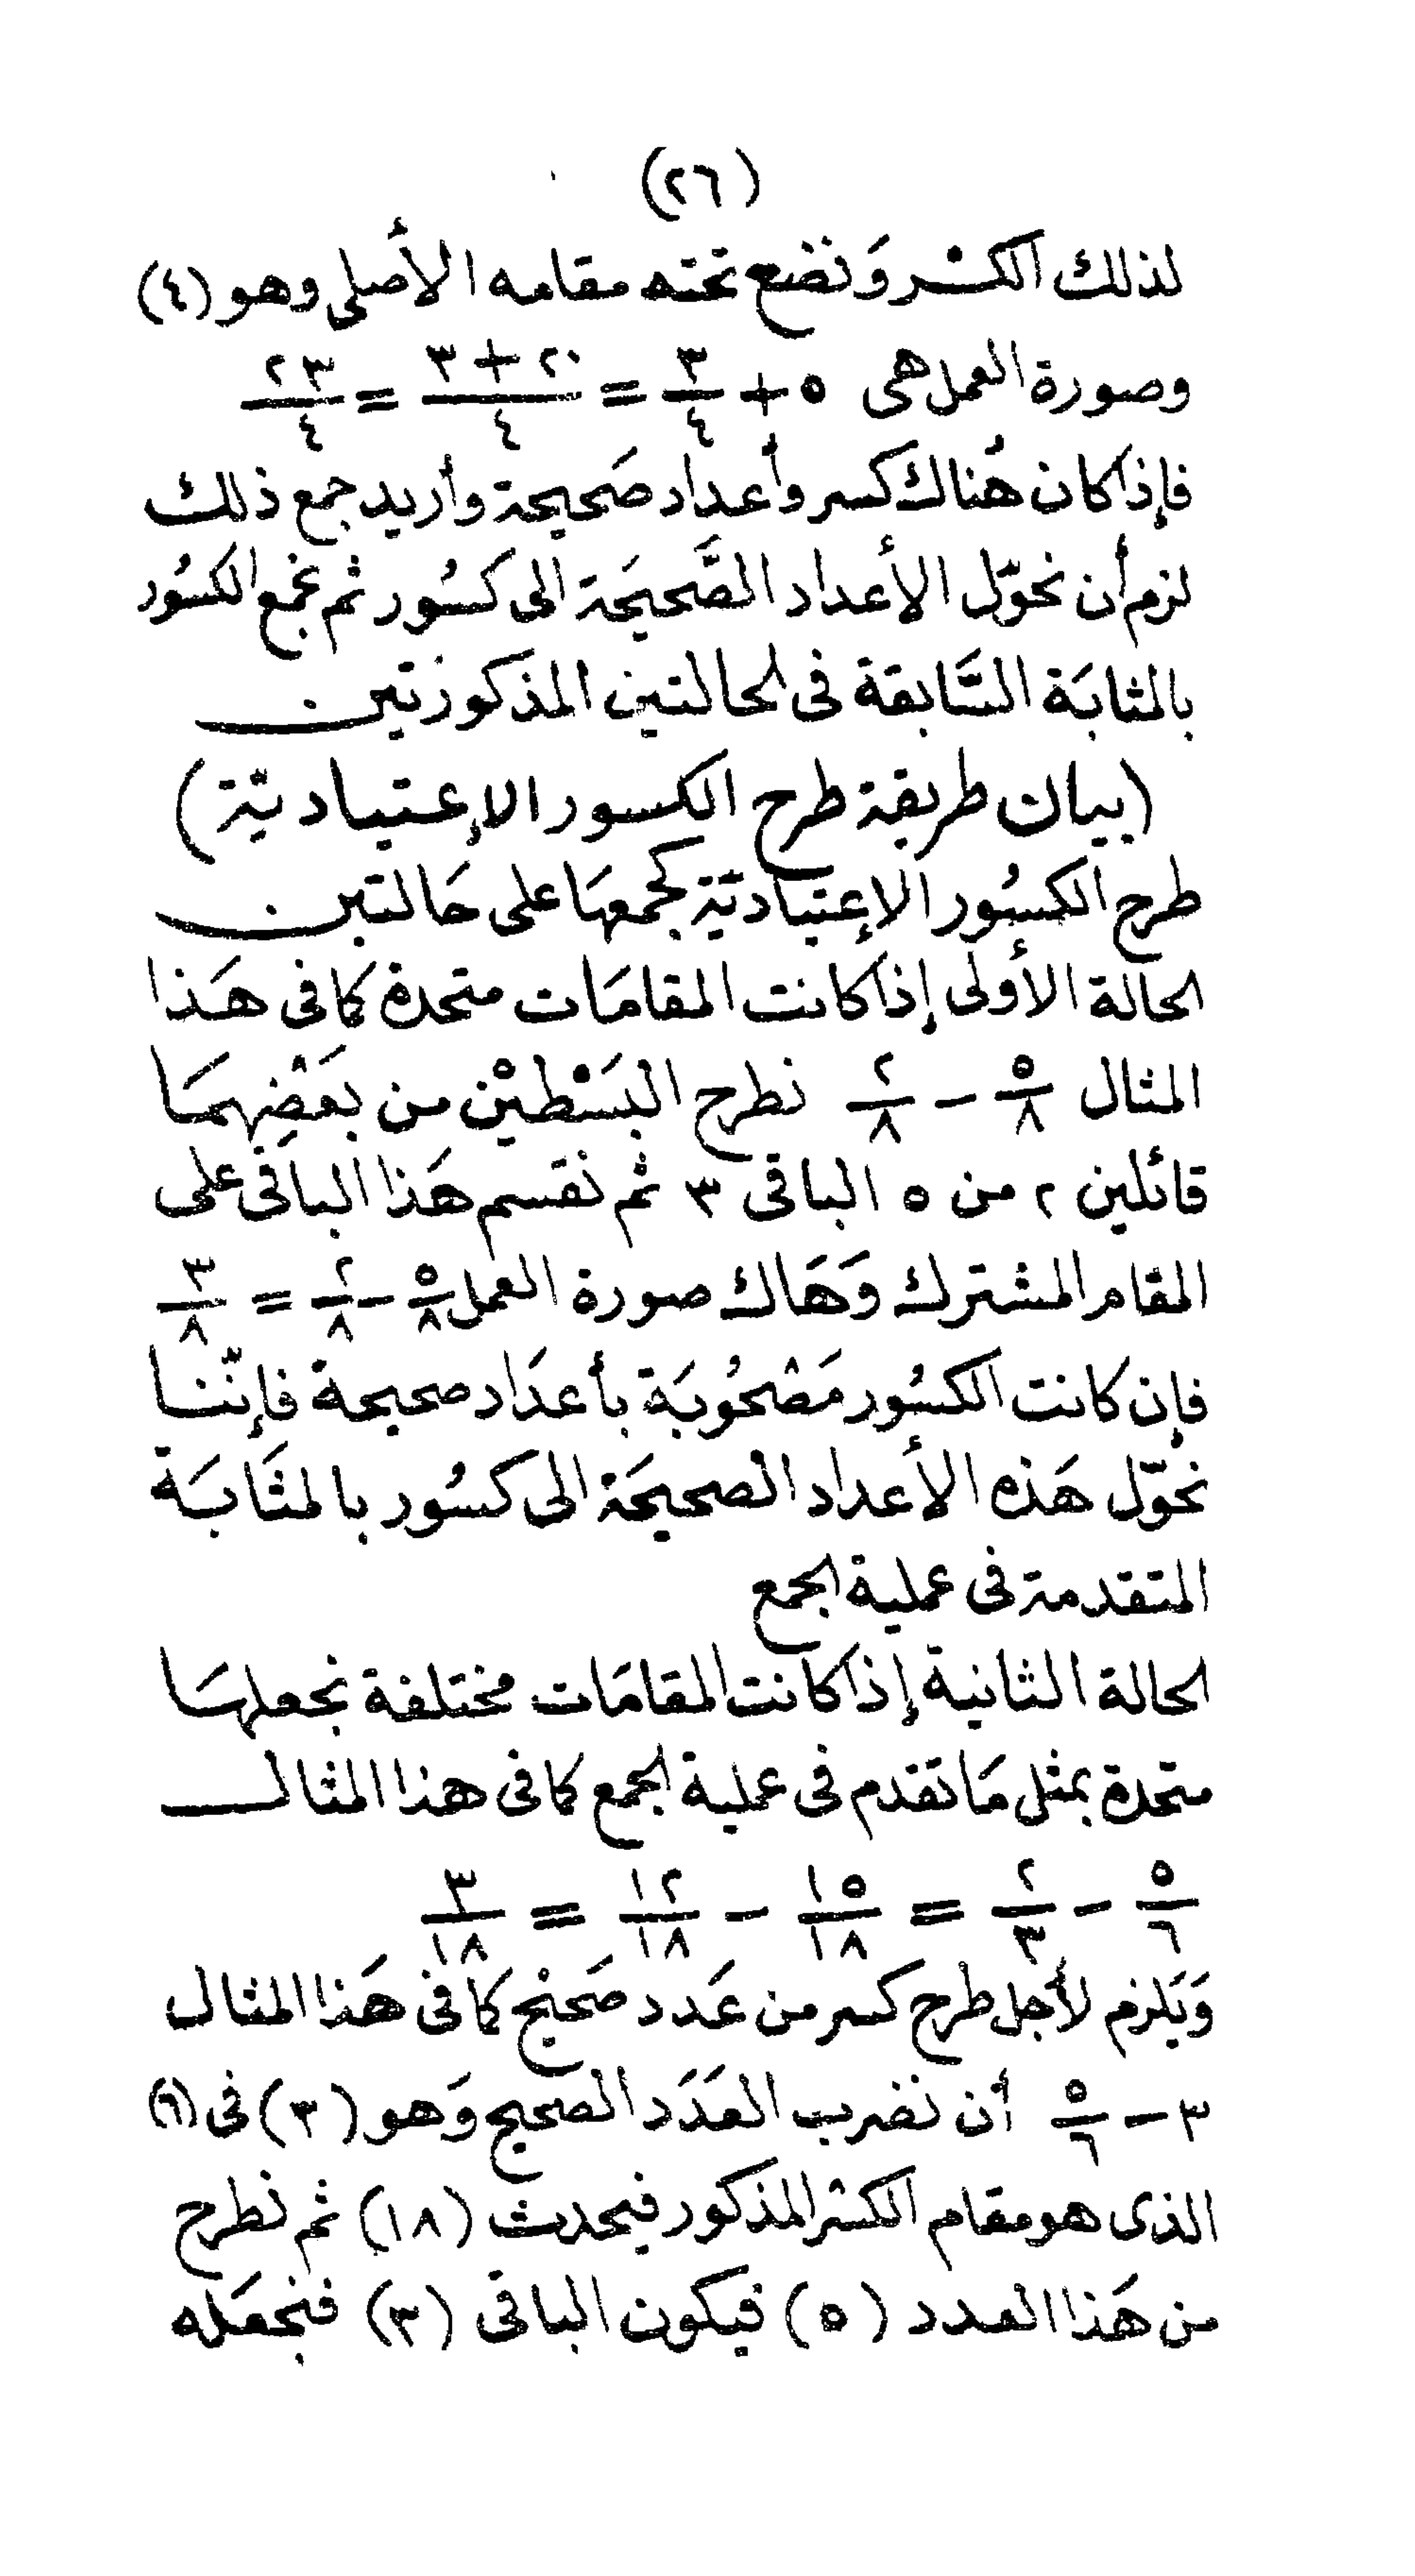 (٢٦)
لذلك الكسْر وَنضع تحته مقامه الأصلى وهو (٤)
وصورة العمل هى ٥ + ٣/٤ = ٢٠ + ٣/٤ = ٢٣/٤
فإذا كان هُناك كسر وأعداد صَحيحة وأريد جمع ذلك
لزم أن نحوّل الأعداد الصَّحيحَة الى كسُور ثم نجمع الكسُور
بالمثابَة السَّابقة فى الحالتين المذكورتين
(بيان طريقة طرح الكسور الإعتياديّة)
طرح الكسُور الإعتياديّة كجمعهَا على حَالتين
الحالة الأولى إذا كانت المقامَات متحدة كما فى هَذا
المثال ٥/٨ - ٢/٨ نطرح البَسْطيْن من بعَضِهمَا
قائلين ٢ من ٥ الباقى ٣ ثم نقسم هَذا الباقى على
المقام المشترك وَهَاك صورة العمل ٥/٨ - ٢/٨ = ٣/٨
فإن كانت الكسُور مَصْحُوبَة بأعدَاد صحيحة فإنّنا
نحوّل هَذه الأعداد الصحيحَة الى كسُور بالمثَابَة
المتقدمة فى عملية الجمع
الحالة الثانية إذا كانت المقامَات مختلفة نجعلهَا
متحدة بمثل مَا تقدم فى عملية الجمع كما فى هذا المثال
٥/٦ - ٢/٣ = ١٥/١٨ - ١٢/١٨ = ٣/١٨
وَيَلزم لأجل طرح كسر من عَدد صَحيْح كما فى هَذا المثال
٣ - ٥/٦ أن نضرب العَدَد الصحيح وَهو (٣) فى (٦)
الذى هو مقام الكسْر المذكور فيحدث (١٨) ثم نطرح
من هَذا العدد (٥) فيكون الباقى (٣) فنجعَله